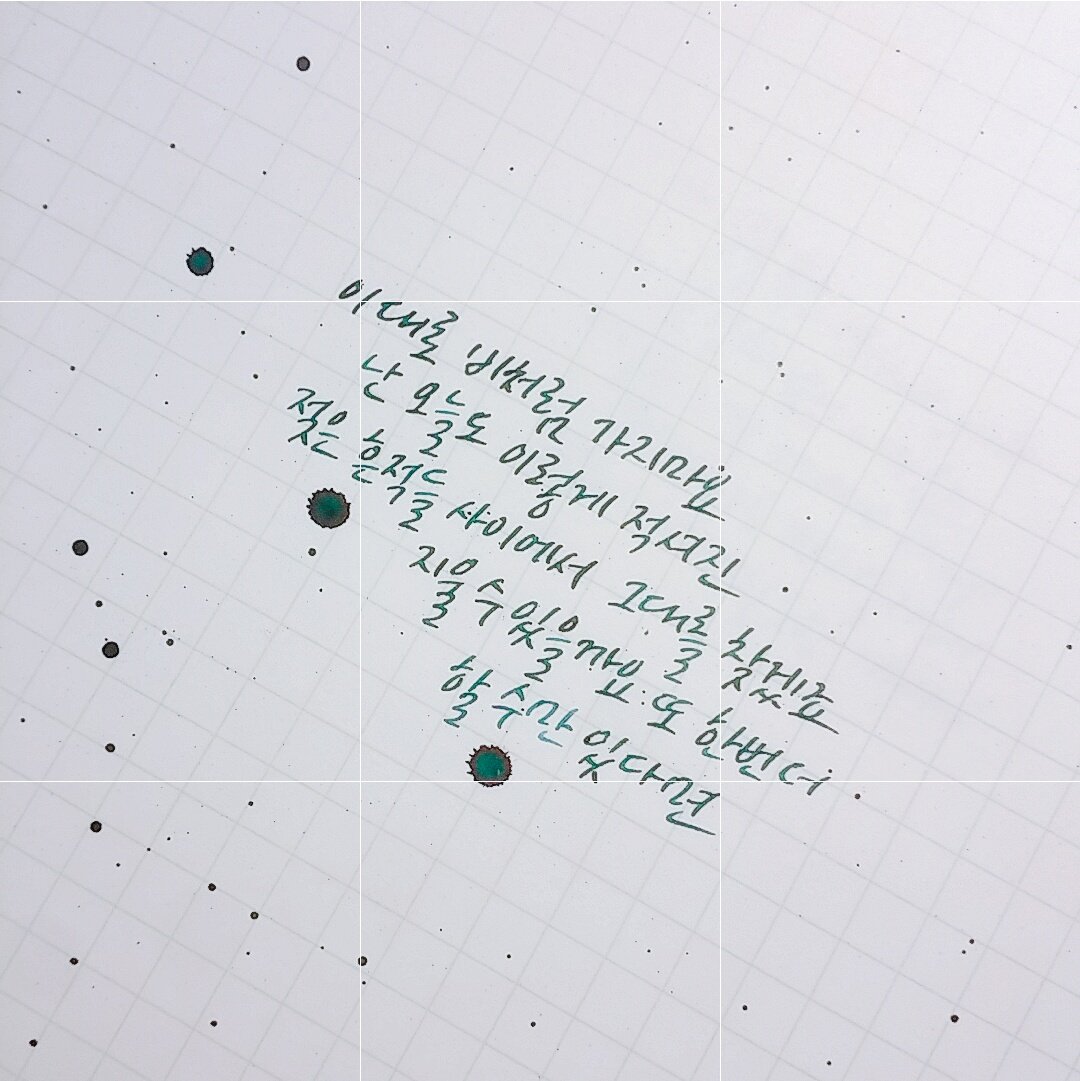 이대로 빗처럼 가지마요
난 오늘도 이렇게 적셔진
젖은 흔적들 사이에서 그대를 찾겠죠
지울 수 있을까요. 또 한번 더
할 수만 있다면